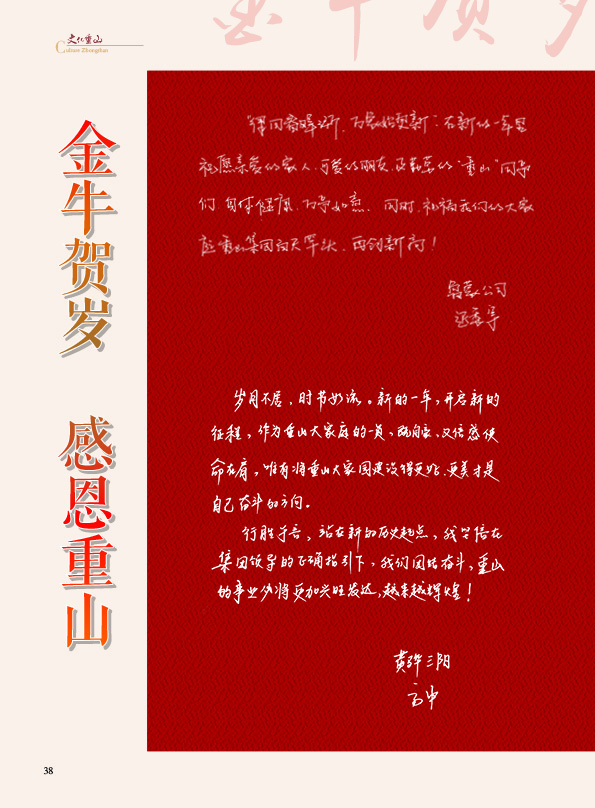 金牛贺岁
文化重山
Culture Zhongshan
金牛贺岁 感恩重山
万象始更新”在新的一年里
祝愿亲爱的家人、可爱的朋友及勤恳的“重山”同事
们 身体健康、万事如意。同时，祝福我们的大家
庭重山集团 再创新高！
公司
岁月不居，时节如流。新的一年，开启新的
征程，作为重山大家庭的一员，既自豪、又倍感使
命在肩，唯有将重山大家园建设得更好、更美才是
自己奋斗的方向。
行胜于言，站在新的历史起点，我坚信在
集团领导的正确指引下，我们团结奋斗，重山
的事业必将更加兴旺发达，越来越辉煌！
黄骅三阳
38